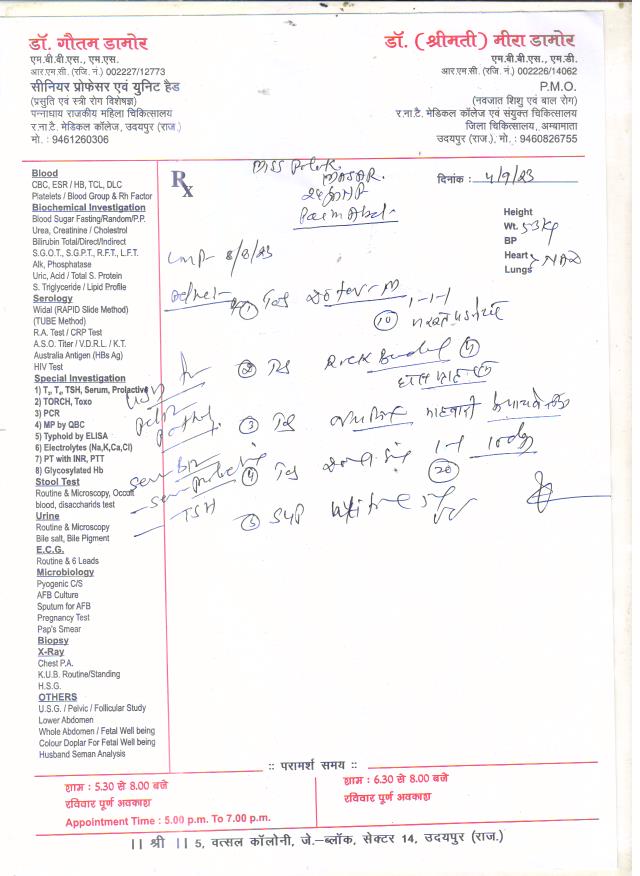 डॉ. गौतम डामोर
एम.बी.बी.एस., एम.एस.
आर.एम.सी. (रजि. नं.) 002227/12773
सीनियर प्रोफेसर एवं युनिट हैड
(प्रसुति एवं स्त्री रोग विशेषज्ञ)
पन्नाधाय राजकीय महिला चिकित्सालय
र.ना.टै. मेडिकल कॉलेज, उदयपुर (राज.)
मो. : 9461260306
डॉ. (श्रीमती) मीरा डामोर
एम.बी.बी.एस., एम.डी.
आर.एम.सी. (रजि. नं.) 002226/14062
P.M.O.
(नवजात शिशु एवं बाल रोग)
र.ना.टै. मेडिकल कॉलेज एवं संयुक्त चिकित्सालय
जिला चिकित्सालय, अम्बामाता
उदयपुर (राज.). मो. : 9460826755
Blood
CBC, ESR / HB, TCL, DLC
Platelets / Blood Group & Rh Factor
Biochemical Investigation
Blood Sugar Fasting/Random/P.P.
Urea, Creatinine / Cholestrol
Bilirubin Total/Direct/Indirect
S.G.O.T., S.G.P.T., R.F.T., L.F.T.
Alk, Phosphatase
Uric, Acid / Total S. Protein
S. Triglyceride / Lipid Profile
Serology
Widal (RAPID Slide Method)
(TUBE Method)
R.A. Test / CRP Test
A.S.O. Titer / V.D.R.L. / K.T.
Australia Antigen (HBs Ag)
HIV Test
Special Investigation
1) T₃, T₄, TSH, Serum, Prolactive
2) TORCH, Toxo
3) PCR
4) MP by QBC
5) Typhoid by ELISA
6) Electrolytes (Na,K,Ca,Cl)
7) PT with INR, PTT
8) Glycosylated Hb
Stool Test
Routine & Microscopy, Occult
blood, disaccharids test
Urine
Routine & Microscopy
Bile salt, Bile Pigment
E.C.G.
Routine & 6 Leads
Microbiology
Pyogenic C/S
AFB Culture
Sputum for AFB
Pregnancy Test
Pap's Smear
Biopsy
X-Ray
Chest P.A.
K.U.B. Routine/Standing
H.S.G.
OTHERS
U.S.G. / Pelvic / Follicular Study
Lower Abdomen
Whole Abdomen / Fetal Well being
Colour Doplar For Fetal Well being
Husband Seman Analysis
Rx
Miss
दिनांक : 4/9/23
Height
Wt. 53 kg
BP
Heart
Lungs NAD
LMP 8/8/23
① 1-1-1
⑩
②
③
④ 1-1
⑳
TSH
⑤ Syp
:: परामर्श समय ::
शाम : 5.30 से 8.00 बजे
रविवार पूर्ण अवकाश
Appointment Time : 5.00 p.m. To 7.00 p.m.
शाम : 6.30 से 8.00 बजे
रविवार पूर्ण अवकाश
|| श्री || 5, वत्सल कॉलोनी, जे.–ब्लॉक, सेक्टर 14, उदयपुर (राज.)